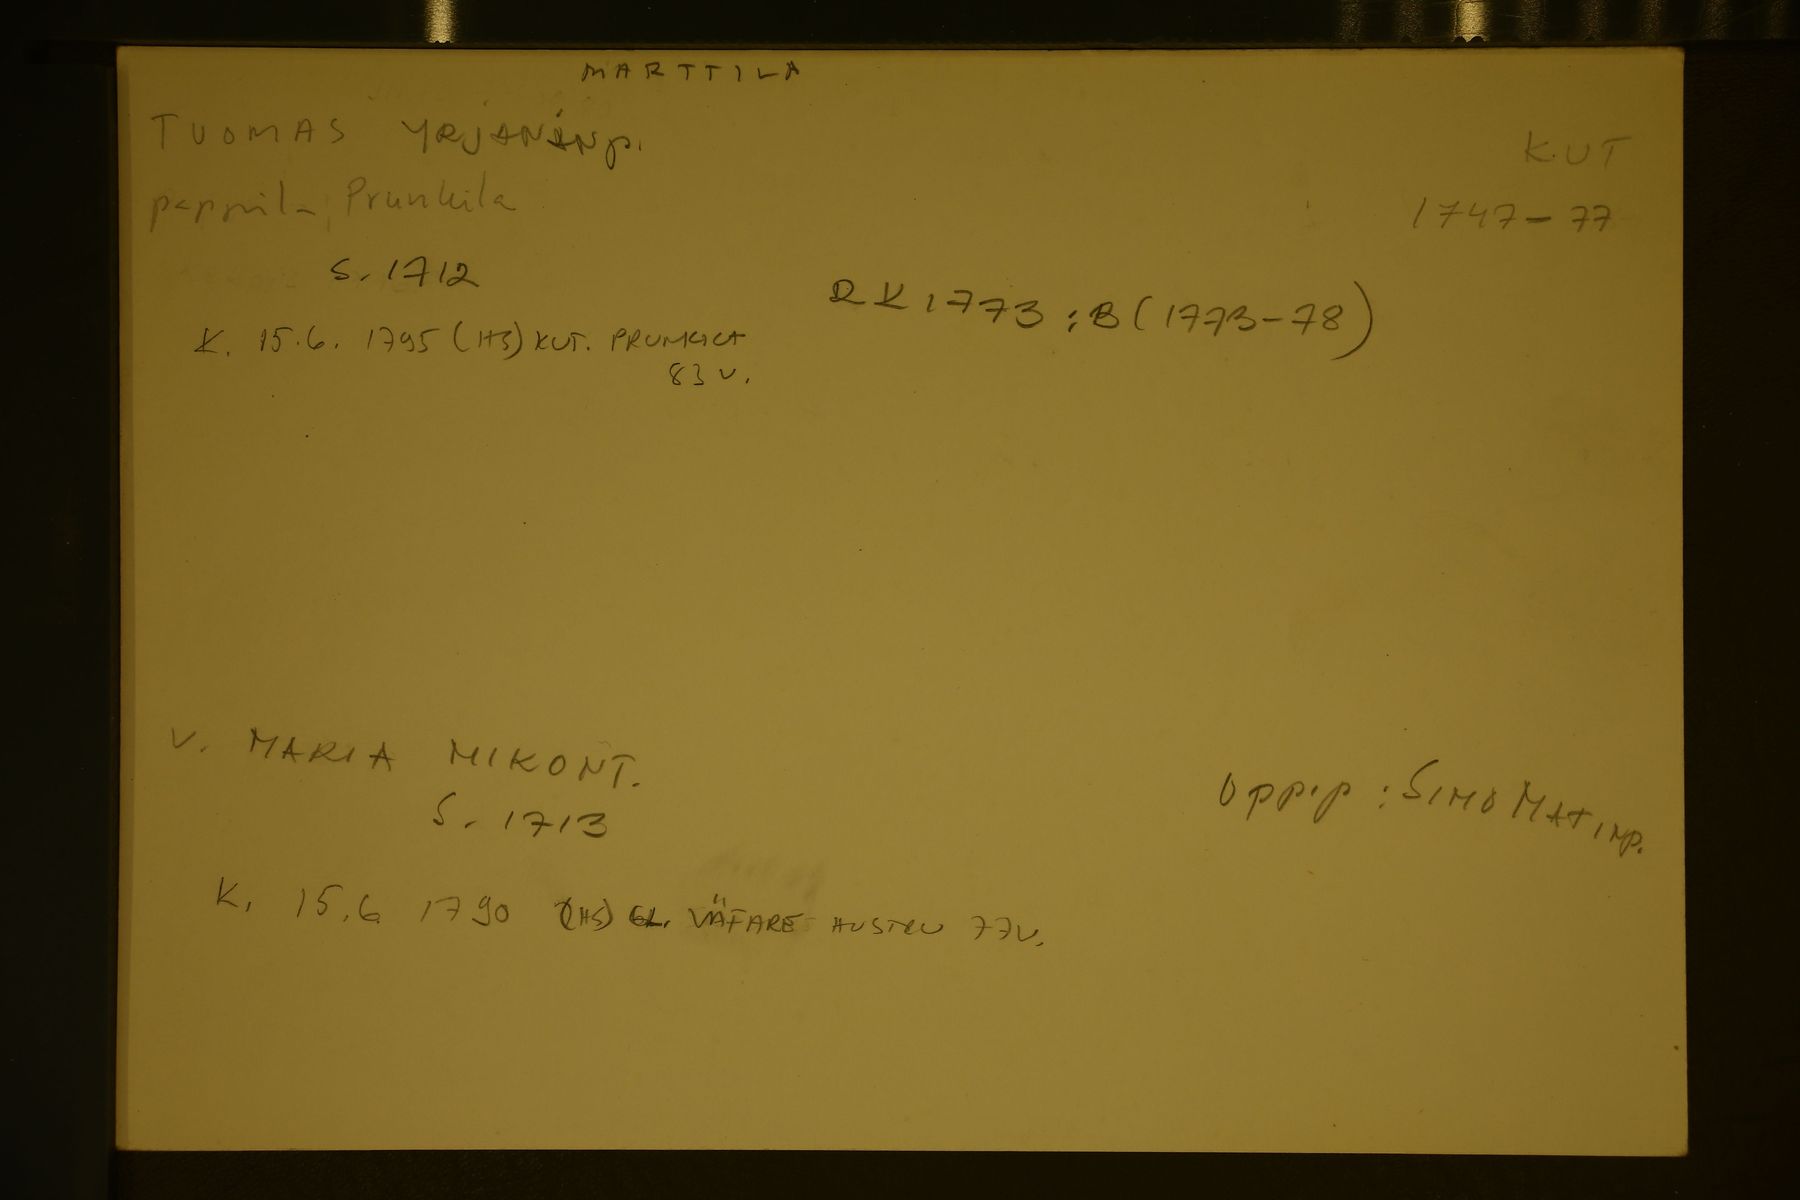 MARTTILA
TUOMAS YRJÄNÄNp.
K.UT
pappila, Prunkila
1747-77
S. 1712
RK 1773:B (1773-78)
K. 15.6. 1795 (HS) KUT. PRUNKILA
83 V.
V. MARIA MIKONT.
S. 1713
Oppip: SIMO MATINp.
K. 15.6 1790 (HS) GL. VÄFARE HUSTRU 77V.